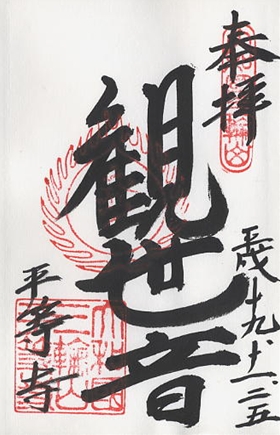 奉拝
観世音
平成十九、十一、二五
平等寺